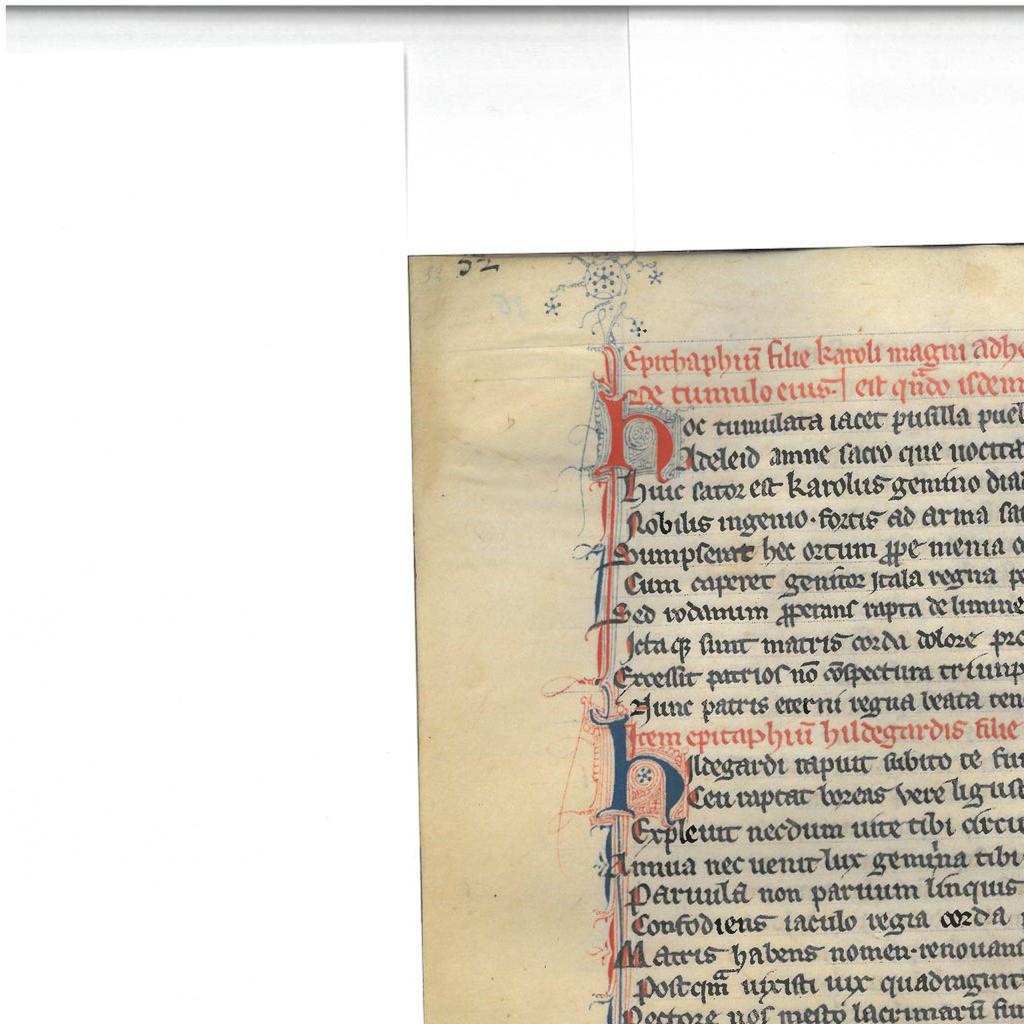 52
Epithaphiū filie karoli magni adhe
De tumulo eius. est qn̄do isdem
Hoc tumulata iacet pusilla puel
Adeleid amne sacro que uocita
Huic sator est karolus gemino dia
Nobilis ingenio. fortis ad arma sa
Sumpserat hec ortum ꝓpe menia
Cum caperet genitor Itala regna pe
Sed rodanum ꝓperans rapta de limine
Ictaqꝫ sunt matris corda dolore pro
Excessit patrios nō cōspectura triump
Nunc patris eterni regna beata ten
Item epitaphiū hildegardis filie
Hildegardi rapuit subito te fun
Ceu raptat boreas vere ligust
Expleuit necdum uite tibi circu
Annua nec uenit lux gemina tibi
Paruula non paruum linquis
Confodiens iaculo regia corda
Matris habens nomen. renouans
Postqm̄ uixisti uix quadragint
Pectore nos mesto lacrimarū fun